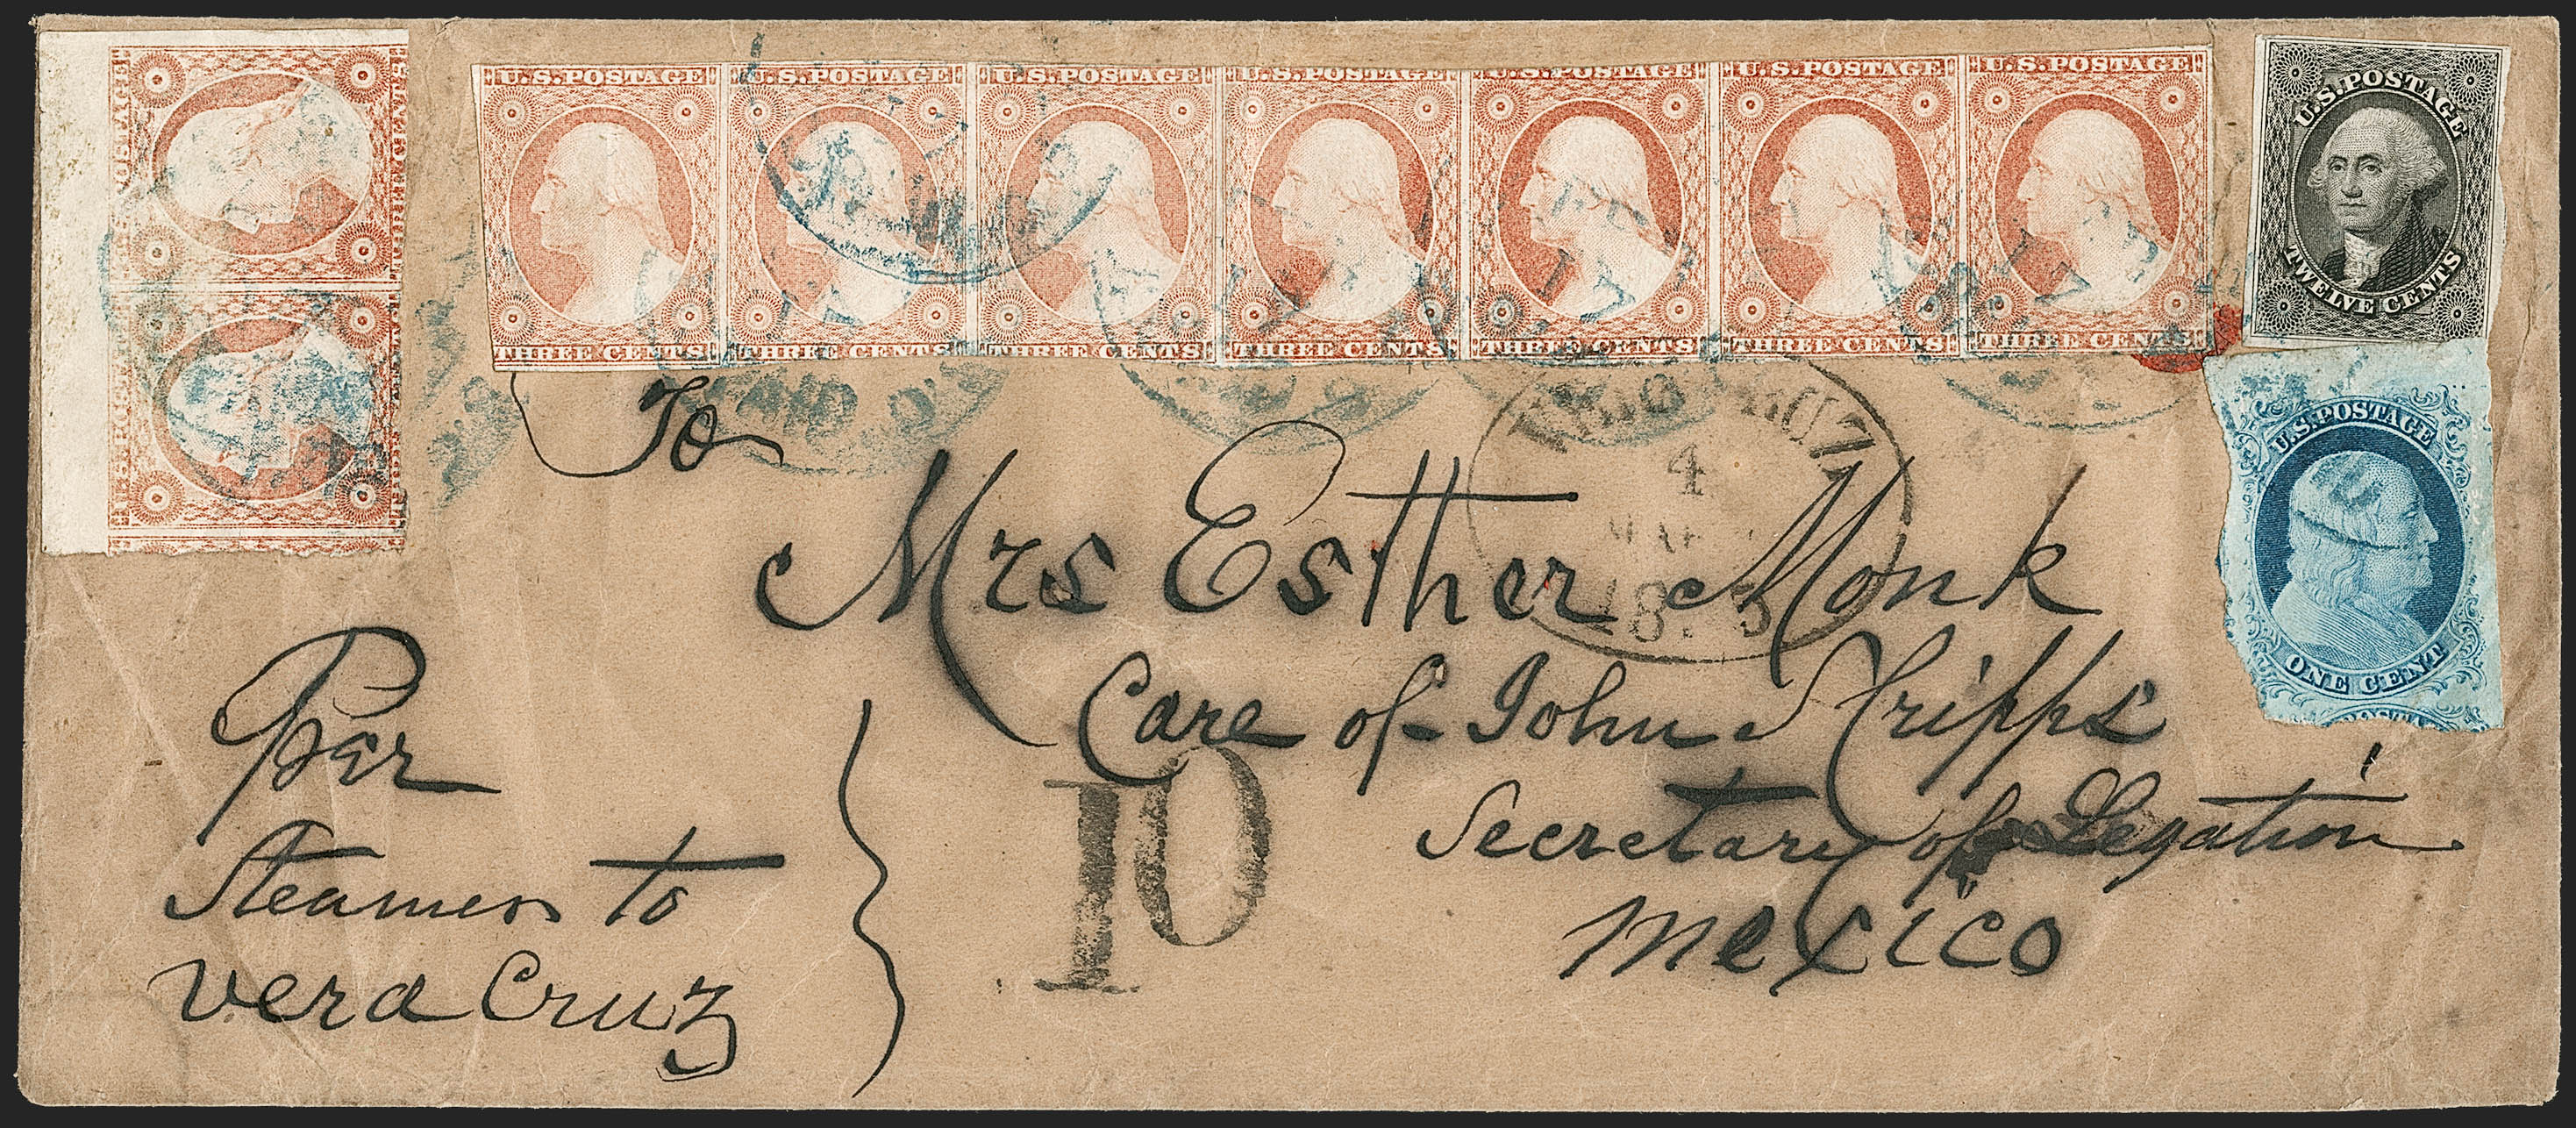 U.S. POSTAGE
THREE CENTS
U.S. POSTAGE
THREE CENTS
U.S. POSTAGE U.S. POSTAGE U.S. POSTAGE U.S. POSTAGE U.S. POSTAGE U.S. POSTAGE U.S. POSTAGE
THREE CENTS THREE CENTS THREE CENTS THREE CENTS THREE CENTS THREE CENTS THREE CENTS
U.S. POSTAGE
TWELVE CENTS
U.S. POSTAGE
ONE CENT
17
17
PAID
4
MAR
To
Mrs Esther Monk
Care of John S Cripps
Secretary of Legation
Mexico
Per
Steamer to
Vera Cruz
10